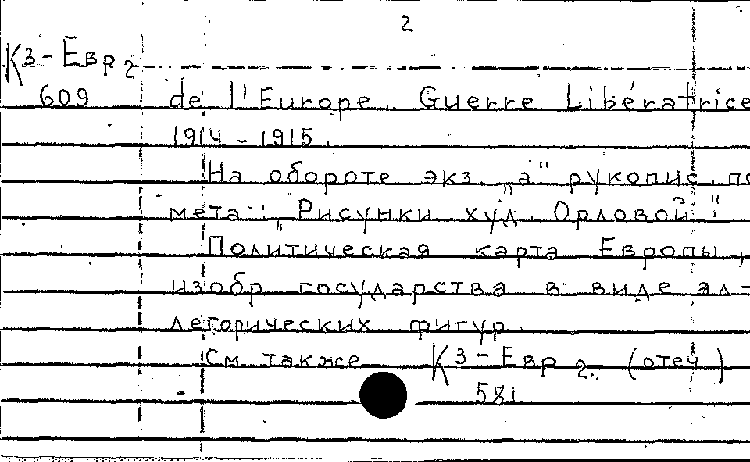 2
К3-Евр 2
609 de l'Europe. Guerre Libératrice
1914-1915.
На обороте экз. „а" рукопис. по
мета: „Рисунки худ. Орловой."
Политическая карта Европы,
изобр. государства в виде ал-
легорических фигур.
См. также К3-Евр 2. (отеч)
581